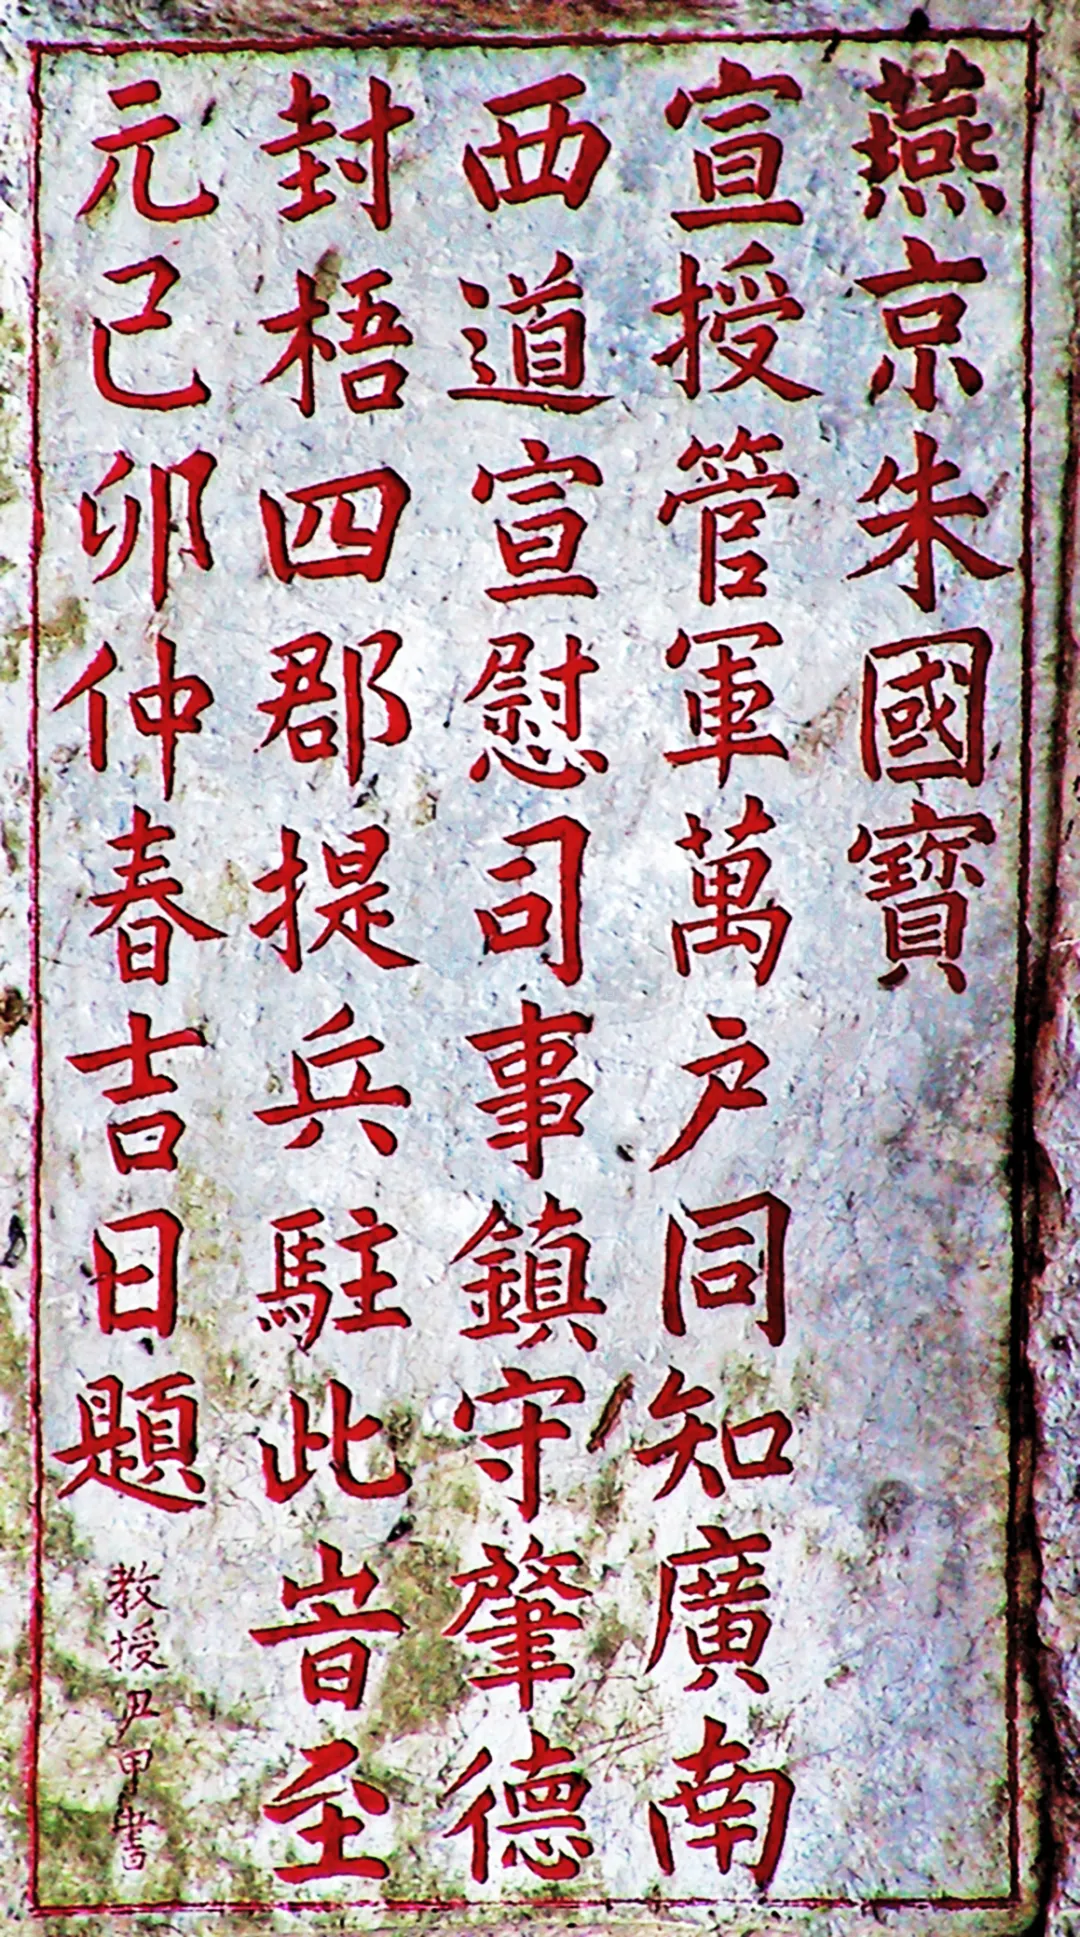 燕京朱國寳
宣授管軍萬戶同知廣南
西道宣慰司事鎮守肇德
封梧四郡提兵駐此旹至
元己卯仲春吉日題
教授尹甲書